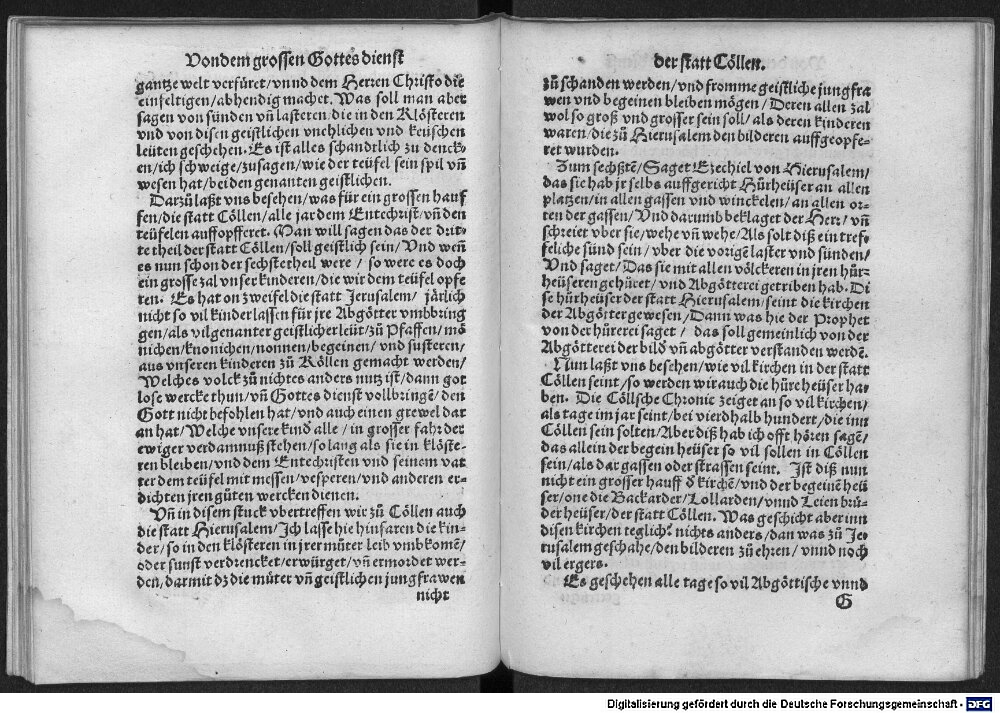 Von dem grossen Gottes dienst
gantze welt verfüret/vnnd dem Herren Christo die
einfeltigen/abhendig machet. Was soll man aber
sagen von sünden vn̄ lasteren/die in den Klösteren
vnd von disen geistlichen vnehlichen vnd keüschen
leüten geschehen. Es ist alles schandtlich zu denck-
en/ich schweige/zusagen/wie der teüfel sein spil vn̄
wesen hat/bei den genanten geistlichen.
Darzů laßt vns besehen/was für ein grossen hauf
fen/die statt Cöllen/alle jar dem Entechrist/vn̄ den
teüfelen auffopfferet. Man will sagen das der drit-
te theil der statt Cöllen/soll geistlich sein/Vnd wen̄
es nun schon der sechster theil were/so were es doch
ein grosse zal vnser kinderen/die wir dem teüfel opfe
ren. Es hat on zweifel die statt Jerusalem/ järlich
nicht so vil kinder lassen für jre Abgötter vmbbring
en/als vil genanter geistlicher leüt/zů Pfaffen/mö
nichen/knonichen/nonnen/begeinen/vnd susteren/
aus vnseren kinderen zů Köllen gemacht werden/
Welches volck zů nichtes anders nutz ist/dann got
lose wercke thun/vn̄ Gottes dienst vollbringē/ den
Gott nicht befohlen hat/vnd auch einen grewel dar
an hat/Welche vnsere kind alle/in grosser fahr der
ewiger verdamnuß stehen/solang als sie in klöste-
ren bleiben/vnd dem Entechristen vnd seinem vat
ter dem teüfel mit messen/vesperen/vnd anderen er-
dichten jren gůten wercken dienen.
Vn̄ in disem stuck vbertreffen wir zů Cöllen auch
die statt Hierusalem/Ich lasse hie hinfaren die kin-
der/so in den klösteren in jrer můter leib vmbkomē/
oder sunst verdrencket/erwürget/vn̄ ermordet wer-
den/darmit dz die můter vn̄ geistlichen jungfrawen
nicht
der statt Cöllen.
zů schanden werden/vnd fromme geistliche jungfra
wen vnd begeinen bleiben mögen/Deren allen zal
wol so groß vnd grosser sein soll/als deren kinderen
waren/die zů Hierusalem den bilderen auffgeopfe-
ret wurden.
Zum sechßtē/Saget Ezechiel von Hierusalem/
das sie hab jr selbs auffgericht Hůrheüser an allen
platzen/in allen gassen vnd winckelen/an allen or-
ten der gassen/Vnd darumb beklaget der Herr/vn̄
schreiet vber sie/wehe vn̄ wehe/Als solt diß ein tref-
feliche sünd sein/vber die vorigē laster vnd sünden/
Vnd saget/Das sie mit allen völckeren in jren hůr-
heüseren gehůret/vnd Abgötterei getriben hab. Di
se hůrheüser der statt Hierusalem/seint die kirchen
der Abgötter gewesen/Dann was hie der Prophet
von der hůrerei saget/ das soll gemeinlich von der
Abgötterei der bild vn̄ abgötter verstanden werdē.
Nun laßt vns besehen/wie vil kirchen in der statt
Cöllen seint/so werden wir auch die hůre heüser ha-
ben. Die Cöllsche Chronic zeiget an so vil kirchen/
als tage im jar seint/bei vierdhalb hundert/die inn
Cöllen sein solten/Aber diß hab ich offt hören sagē/
das allein der begein heüser so vil sollen in Cöllen
sein/als dar gassen oder strassen seint. Ist diß nun
nicht ein grosser hauff d̓ kirchē/vnd der begeinē heü
ser/one die Backarder/Lollarden/vnnd Leien brü-
der heüser/der statt Cöllen. Was geschicht aber inn
disen kirchen teglich? nichts anders/dan was zů Je-
rusalem geschahe/den bilderen zů ehren/ vnnd noch
vil ergers.
Es geschehen alle tage so vil Abgöttische vnnd
G
Digitalisierung gefördert durch die Deutsche Forschungsgemeinschaft - DFG